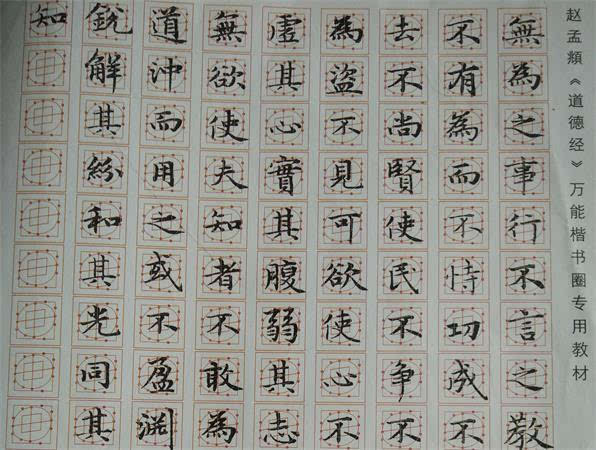 赵孟頫《道德经》万能楷书圈专用教材
無為之事行不言之教
不有為而不恃功成不
去不尚賢使民不争不
為盜不見可欲使心不
虛其心實其腹弱其志
無欲使夫知者不敢為
道沖而用之或不盈渊
銳解其紛和其光同其
知